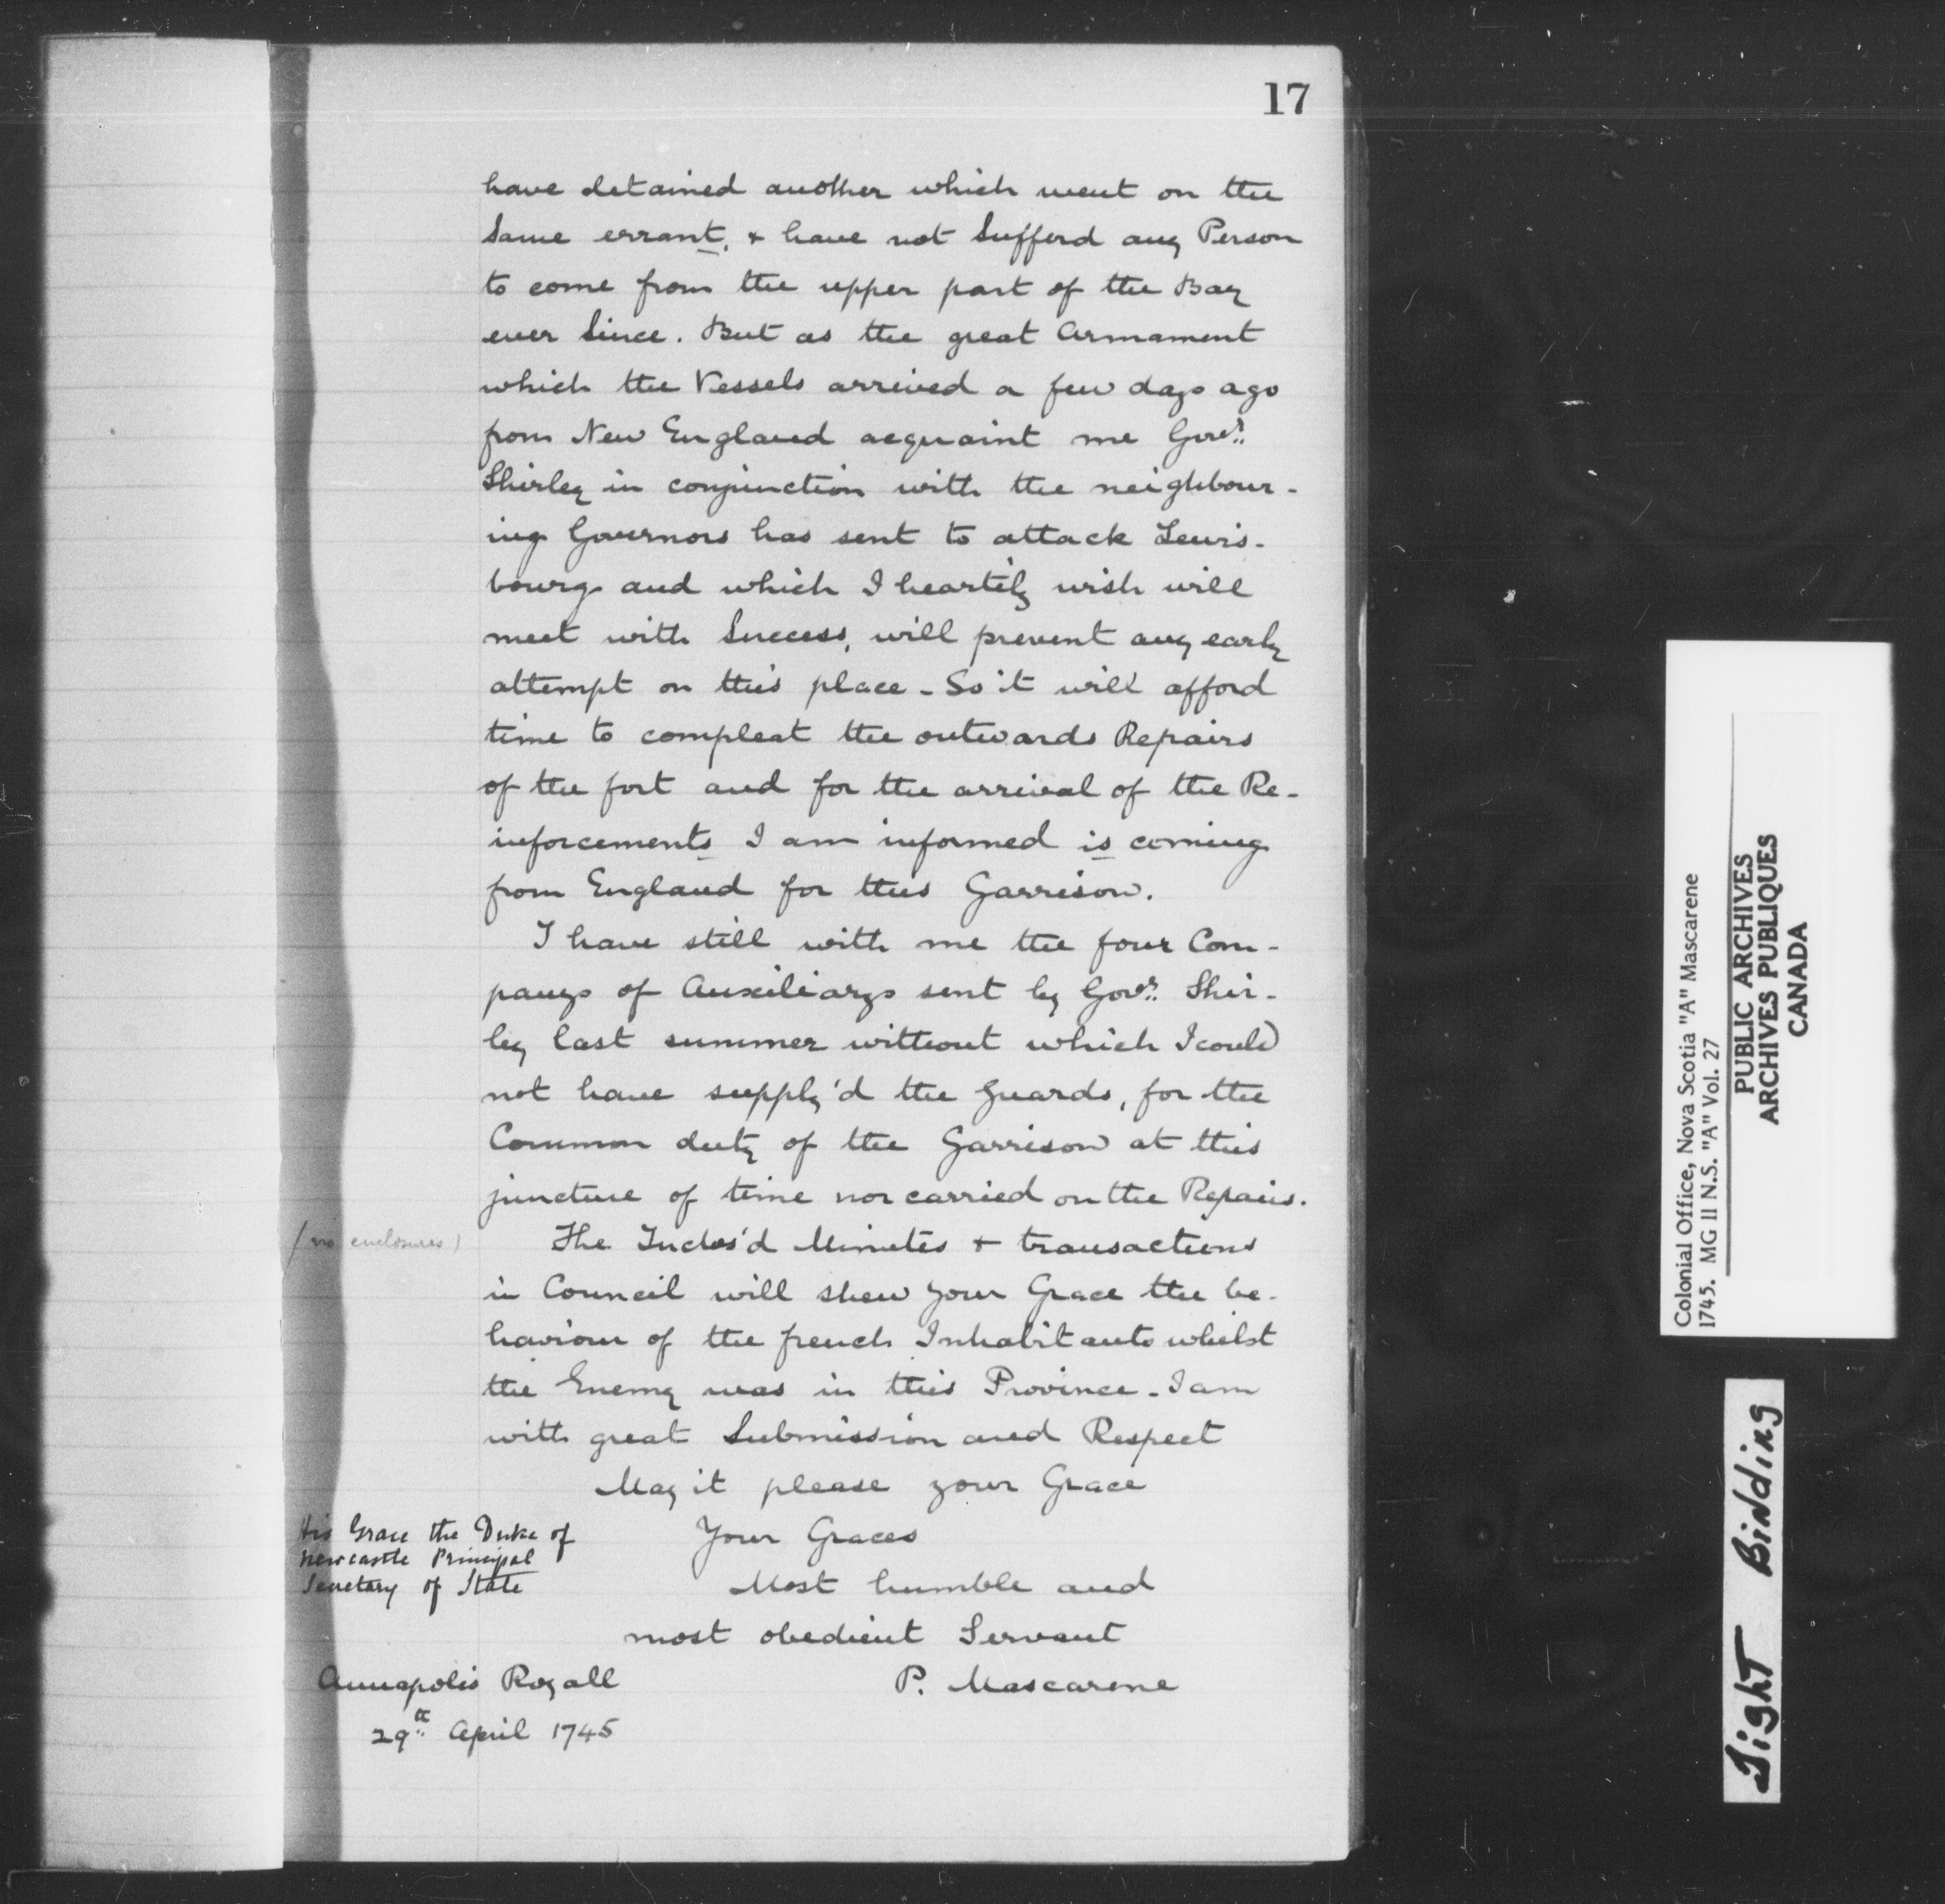 17
have detained another which went on the
Same errant, & have not Sufferd any Person
to come from the upper part of the Bay
ever Since. But as the great Armament
which the Vessels arrived a few days ago
from New England acquaint me Govr.
Shirley in conjunction with the neighbour-
ing Governors has sent to attack Lewis-
bourg and which I heartily wish will
meet with Success, will prevent any early
attempt on this place - So it will afford
time to compleat the outwards Repairs
of the fort and for the arrival of the Re-
inforcements I am informed is coming
from England for this Garrison.
I have still with me the four Com-
panys of Auxiliarys sent by Govr. Shir-
ley last summer without which I could
not have supply'd the Guards, for the
Common duty of the Garrison at this
juncture of time nor carried on the Repairs.
(no enclosures)
The Inclos'd Minutes & transactions
in Council will shew your Grace the be-
haviour of the french Inhabitants whilst
the Enemy was in this Province - I am
with great Submission and Respect
May it please your Grace
Your Graces
Most humble and
most obedient Servant
P. Mascarene
His Grace the Duke of
Newcastle Principal
Secretary of State
Annapolis Royall
29th April 1745
Colonial Office, Nova Scotia "A" Mascarene
1745. MG II N.S. "A" Vol. 27
PUBLIC ARCHIVES
ARCHIVES PUBLIQUES
CANADA
Tight Binding